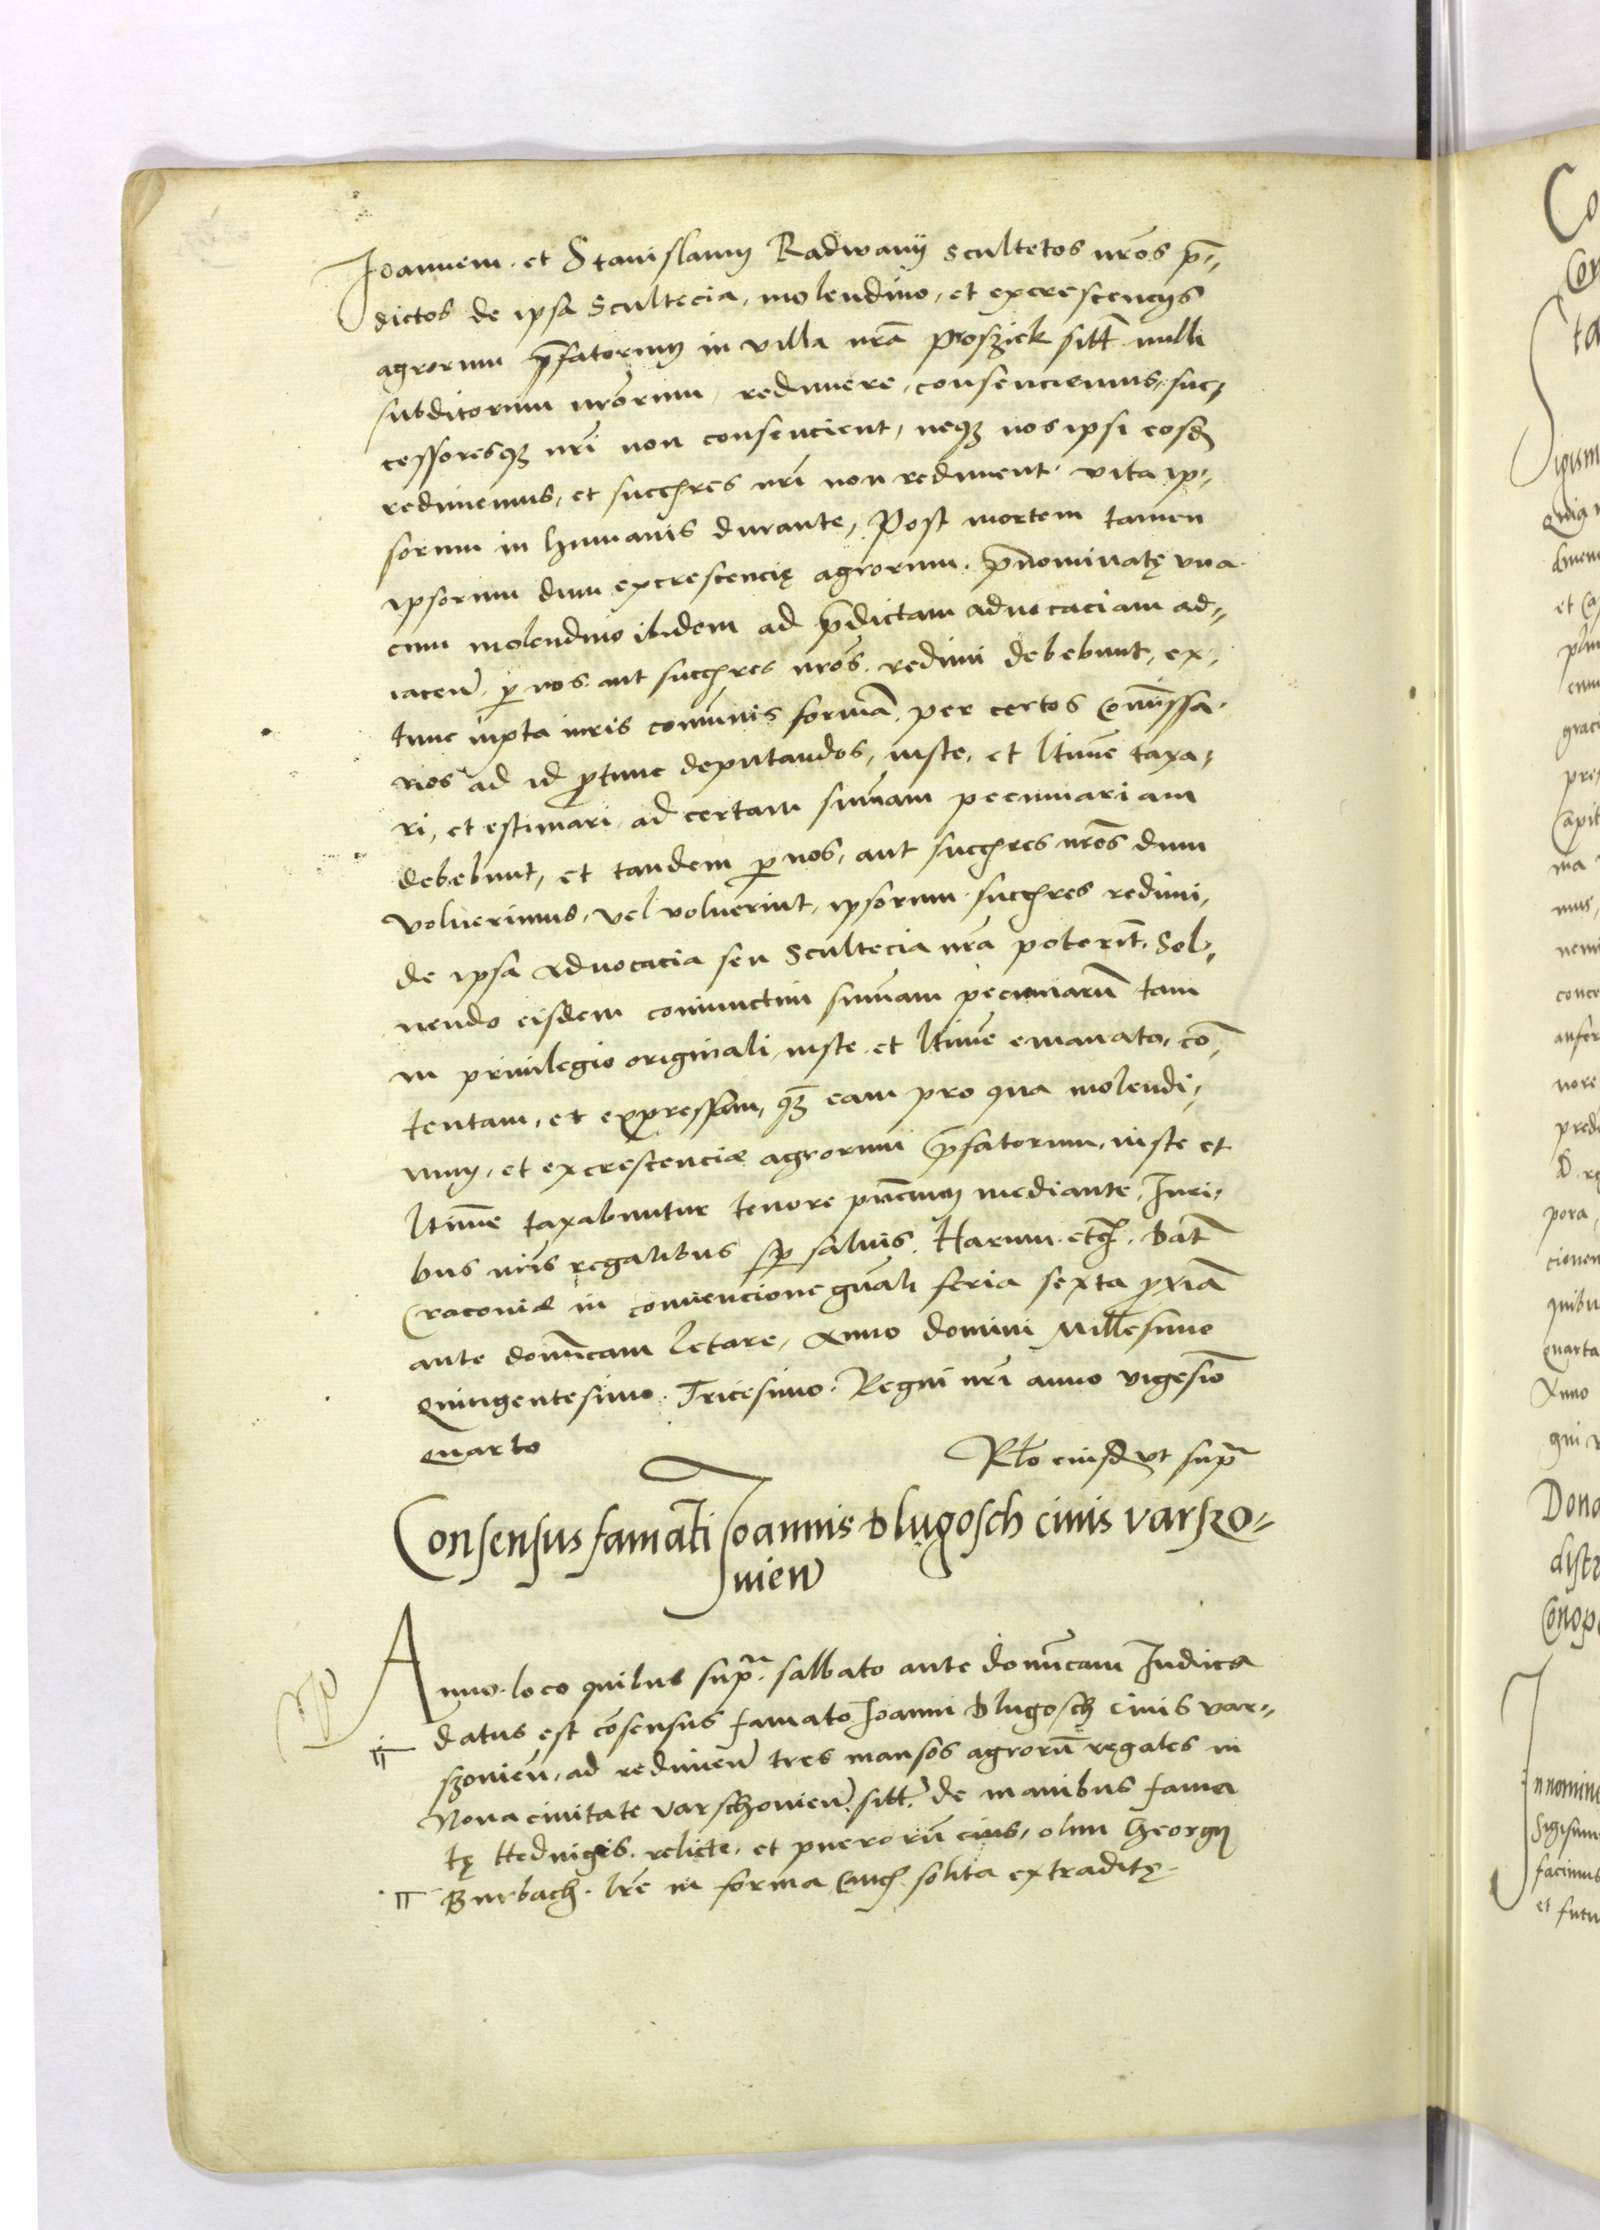 Joannem et Stanislaum Radwanij scultetos nr̃os p̃-
dictos de ipsa scultecia, molendino, et excrescencijs
agrorum p̃fatorum in villa nr̃a Proszick sitt̃ nulli
subditorum nr̃orum redimere, consenciemus, suc-
cessoresqȝ nr̃i non consencient, neqȝ nos ipsi eosd̃
redimemus, et succ̃res nr̃i non rediment vita ip-
sorum in humanis durante, Post mortem tamen
ipsorum dum excrescencię agrorum p̃nominatę vna
cum molendino ibidem ad p̃dictam aduocaciam ad-
iacen̄ p̱ nos aut succ̃res nr̃os redimi debebunt, ex-
tunc iuxta iuris com̃unis formã per certos Com̃issa-
rios ad id p̱tunc deputandos, iuste, et l̃time taxa-
ri, et estimari ad certam sum̃am pecuniariam
debebunt, et tandem p̱ nos, aut succ̃res nr̃os dum
voluerimus, vel voluerint, ipsorum succ̃res redimi,
de ipsa Aduocacia seu Scultecia nr̃a poterint̃, Sol-
uendo eisdem coniunctim sum̃am pecuniarũ tam
in priuilegio originali, iuste et l̃time emanato, cõ-
tentam, et expressam, qȝ eam pro qua molendi-
num, et excrescenciæ agrorum p̃fatorum, iuste et
l̃time taxabuntur tenore pñcium mediante, Iuri-
bus nr̃is regalibus sp̱ saluis. Harum etc̃. Dat̃
Cracoviæ in conuencione gñali feria sexta p̱xiã
ante dom̃icam Letare, Anno domini Millesimo
Quingentesimo Tricesimo. Regni nr̃i anno vigesiõ
quarto
Rl̃o eiusd̃ vt supr̃a
Consensus famati Joannis Dlugosch ciuis varszo-
uien̄
Anno. loco quibus supr̃a. sabbato ante domĩcam Judica
datus est cõsensus famato Joanni Dlugosch ciuis var-
szouien̄, ad redimen̄ tres mansos agrorũ regales in
Noua ciuitate varschouien̄. sitt̃. de manibus fama
tę Heduigis relicte, et puerorũ eius, olim Georgij
Burbach. lr̃e in forma Canc̃. solita extraditę.